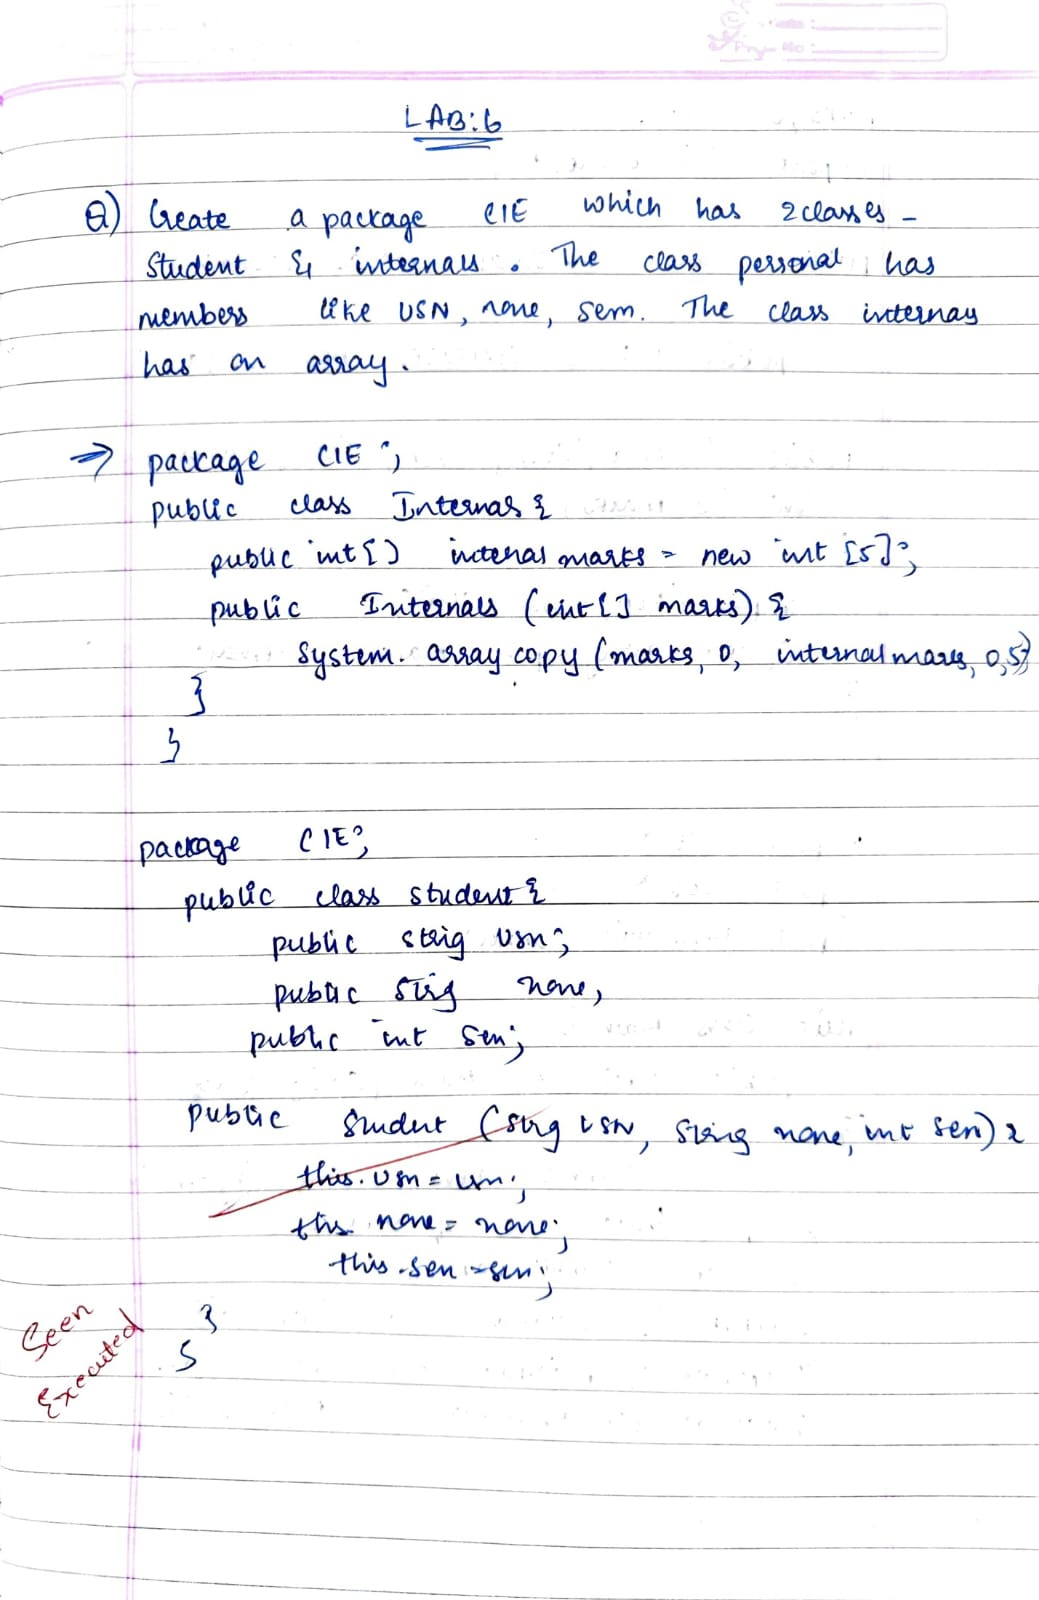 Page No:
LAB:6
Q) Create a package CIE which has 2 classes -
Student & internals. The class personal has
members like USN, name, sem. The class internals
has an array.
→ package CIE ;
public class Internals {
public int[] internal marks = new int [5];
public Internals (int[] marks) {
System. array copy (marks, 0, internal marks, 0,5);
}
}
package CIE;
public class student {
public strig usn;
public strig name,
public int sem;
public Student (strig USN, string name, int sem) {
this. usn = usn;
this name = name;
this .sem = sem;
}
}
Seen
Executed